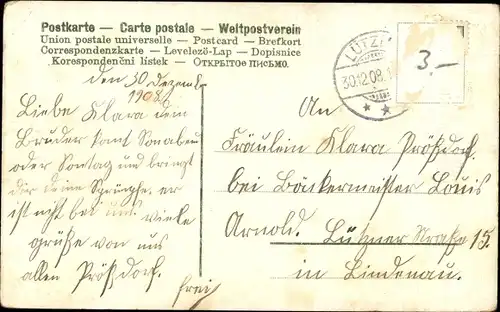 Postkarte — Carte postale — Weltpostverein
Union postale universelle — Postcard — Brefkort
Correspondenzkarte — Levelező-Lap — Dopisnice
Korespondenční lístek — Открытое письмо.
LÜTZ
30.12.08.
3.–
den 30 Dezemb.
1908
Liebe Klara dein
Bruder komt Sonabend
oder Sontag und bringt
dir deine er
ist nicht bei uns. viele
grüße von uns
allen Prößdorf.
frei
An
Fräulein Klara Prößdorf.
bei Bäckermeister Louis
Arnold. Lützner Straße 15.
in Lindenau.